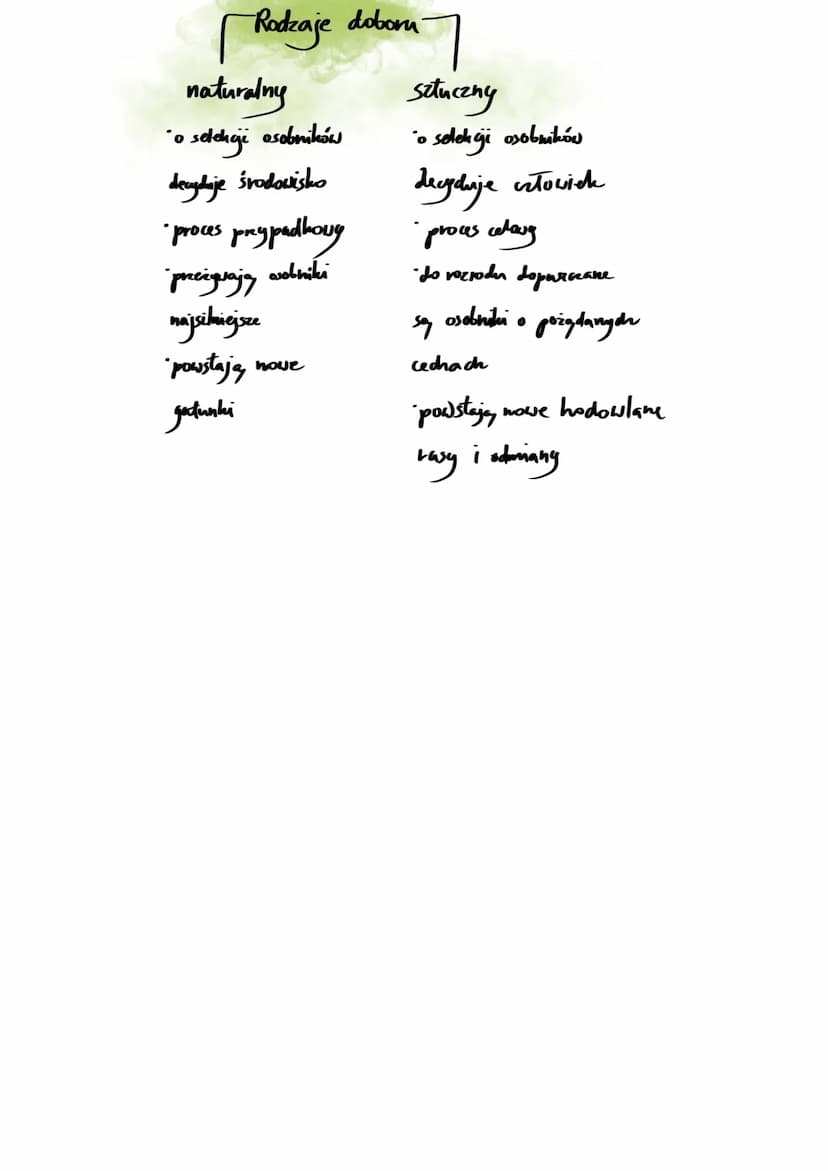 Rodzaje doboru
naturalny
• o selekcji osobników
decyduje środowisko
• proces przypadkowy
• przeżywają osobniki
najsilniejsze
• powstają nowe
gatunki
sztuczny
• o selekcji osobników
decyduje człowiek
• proces celowy
• do rozrodu dopuszczane
są osobniki o pożądanych
cechach
• powstają nowe hodowlane
rasy i odmiany